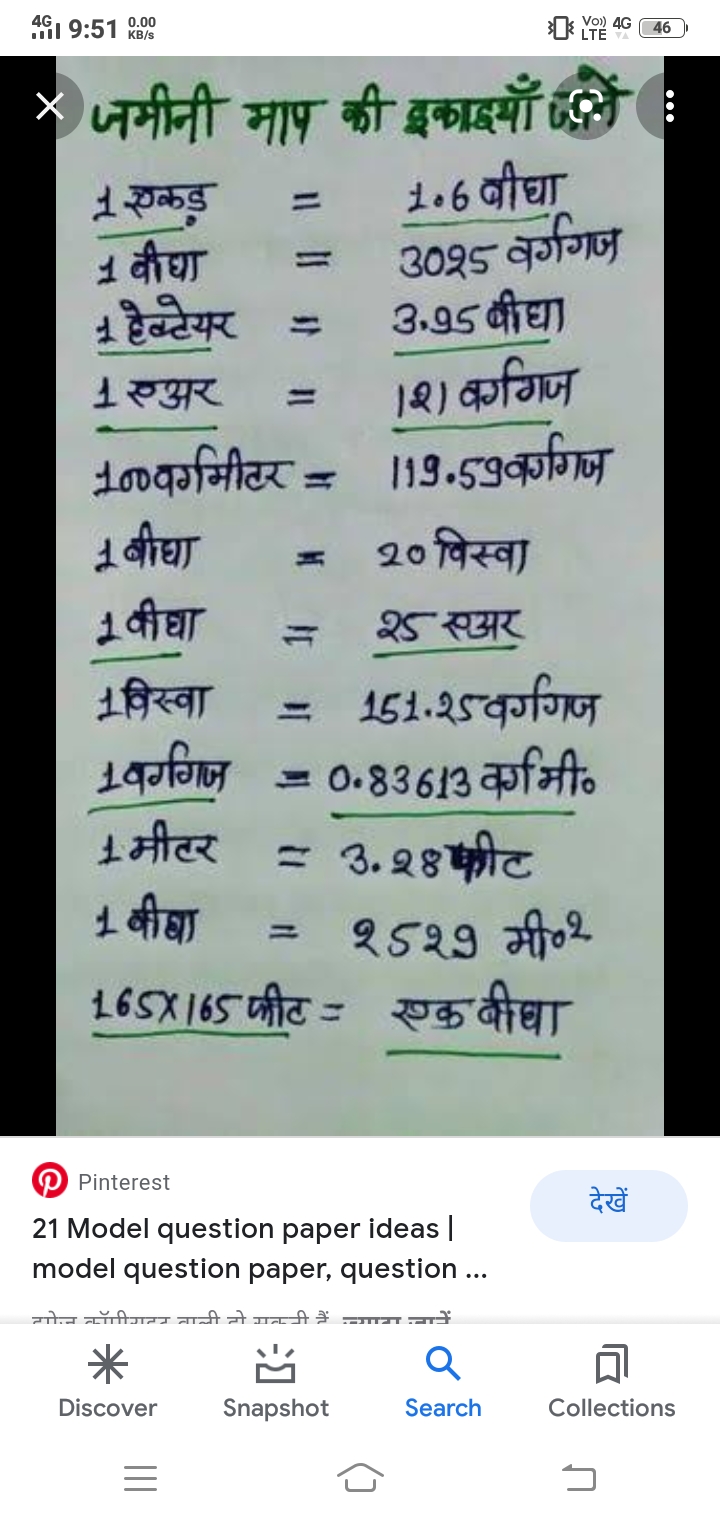 4G 9:51 0.00 KB/s Vo)) LTE 4G 46
जमीनी माप की इकाइयाँ जानें
1 एकड़ = 1.6 बीघा
1 बीघा = 3025 वर्गगज
1 हेक्टेयर = 3.95 बीघा
1 एअर = 121 वर्गगज
100 वर्गमीटर = 119.59 वर्गगज
1 बीघा = 20 विस्वा
1 बीघा = 25 एअर
1 विस्वा = 151.25 वर्गगज
1 वर्गगज = 0.83613 वर्ग मी०
1 मीटर = 3.28 फीट
1 बीघा = 2529 मी०²
165X165 फीट = एक बीघा
Pinterest
देखें
21 Model question paper ideas |
model question paper, question ...
इमेज कॉपीराइट वाली हो सकती हैं. ज़्यादा जानें
Discover Snapshot Search Collections